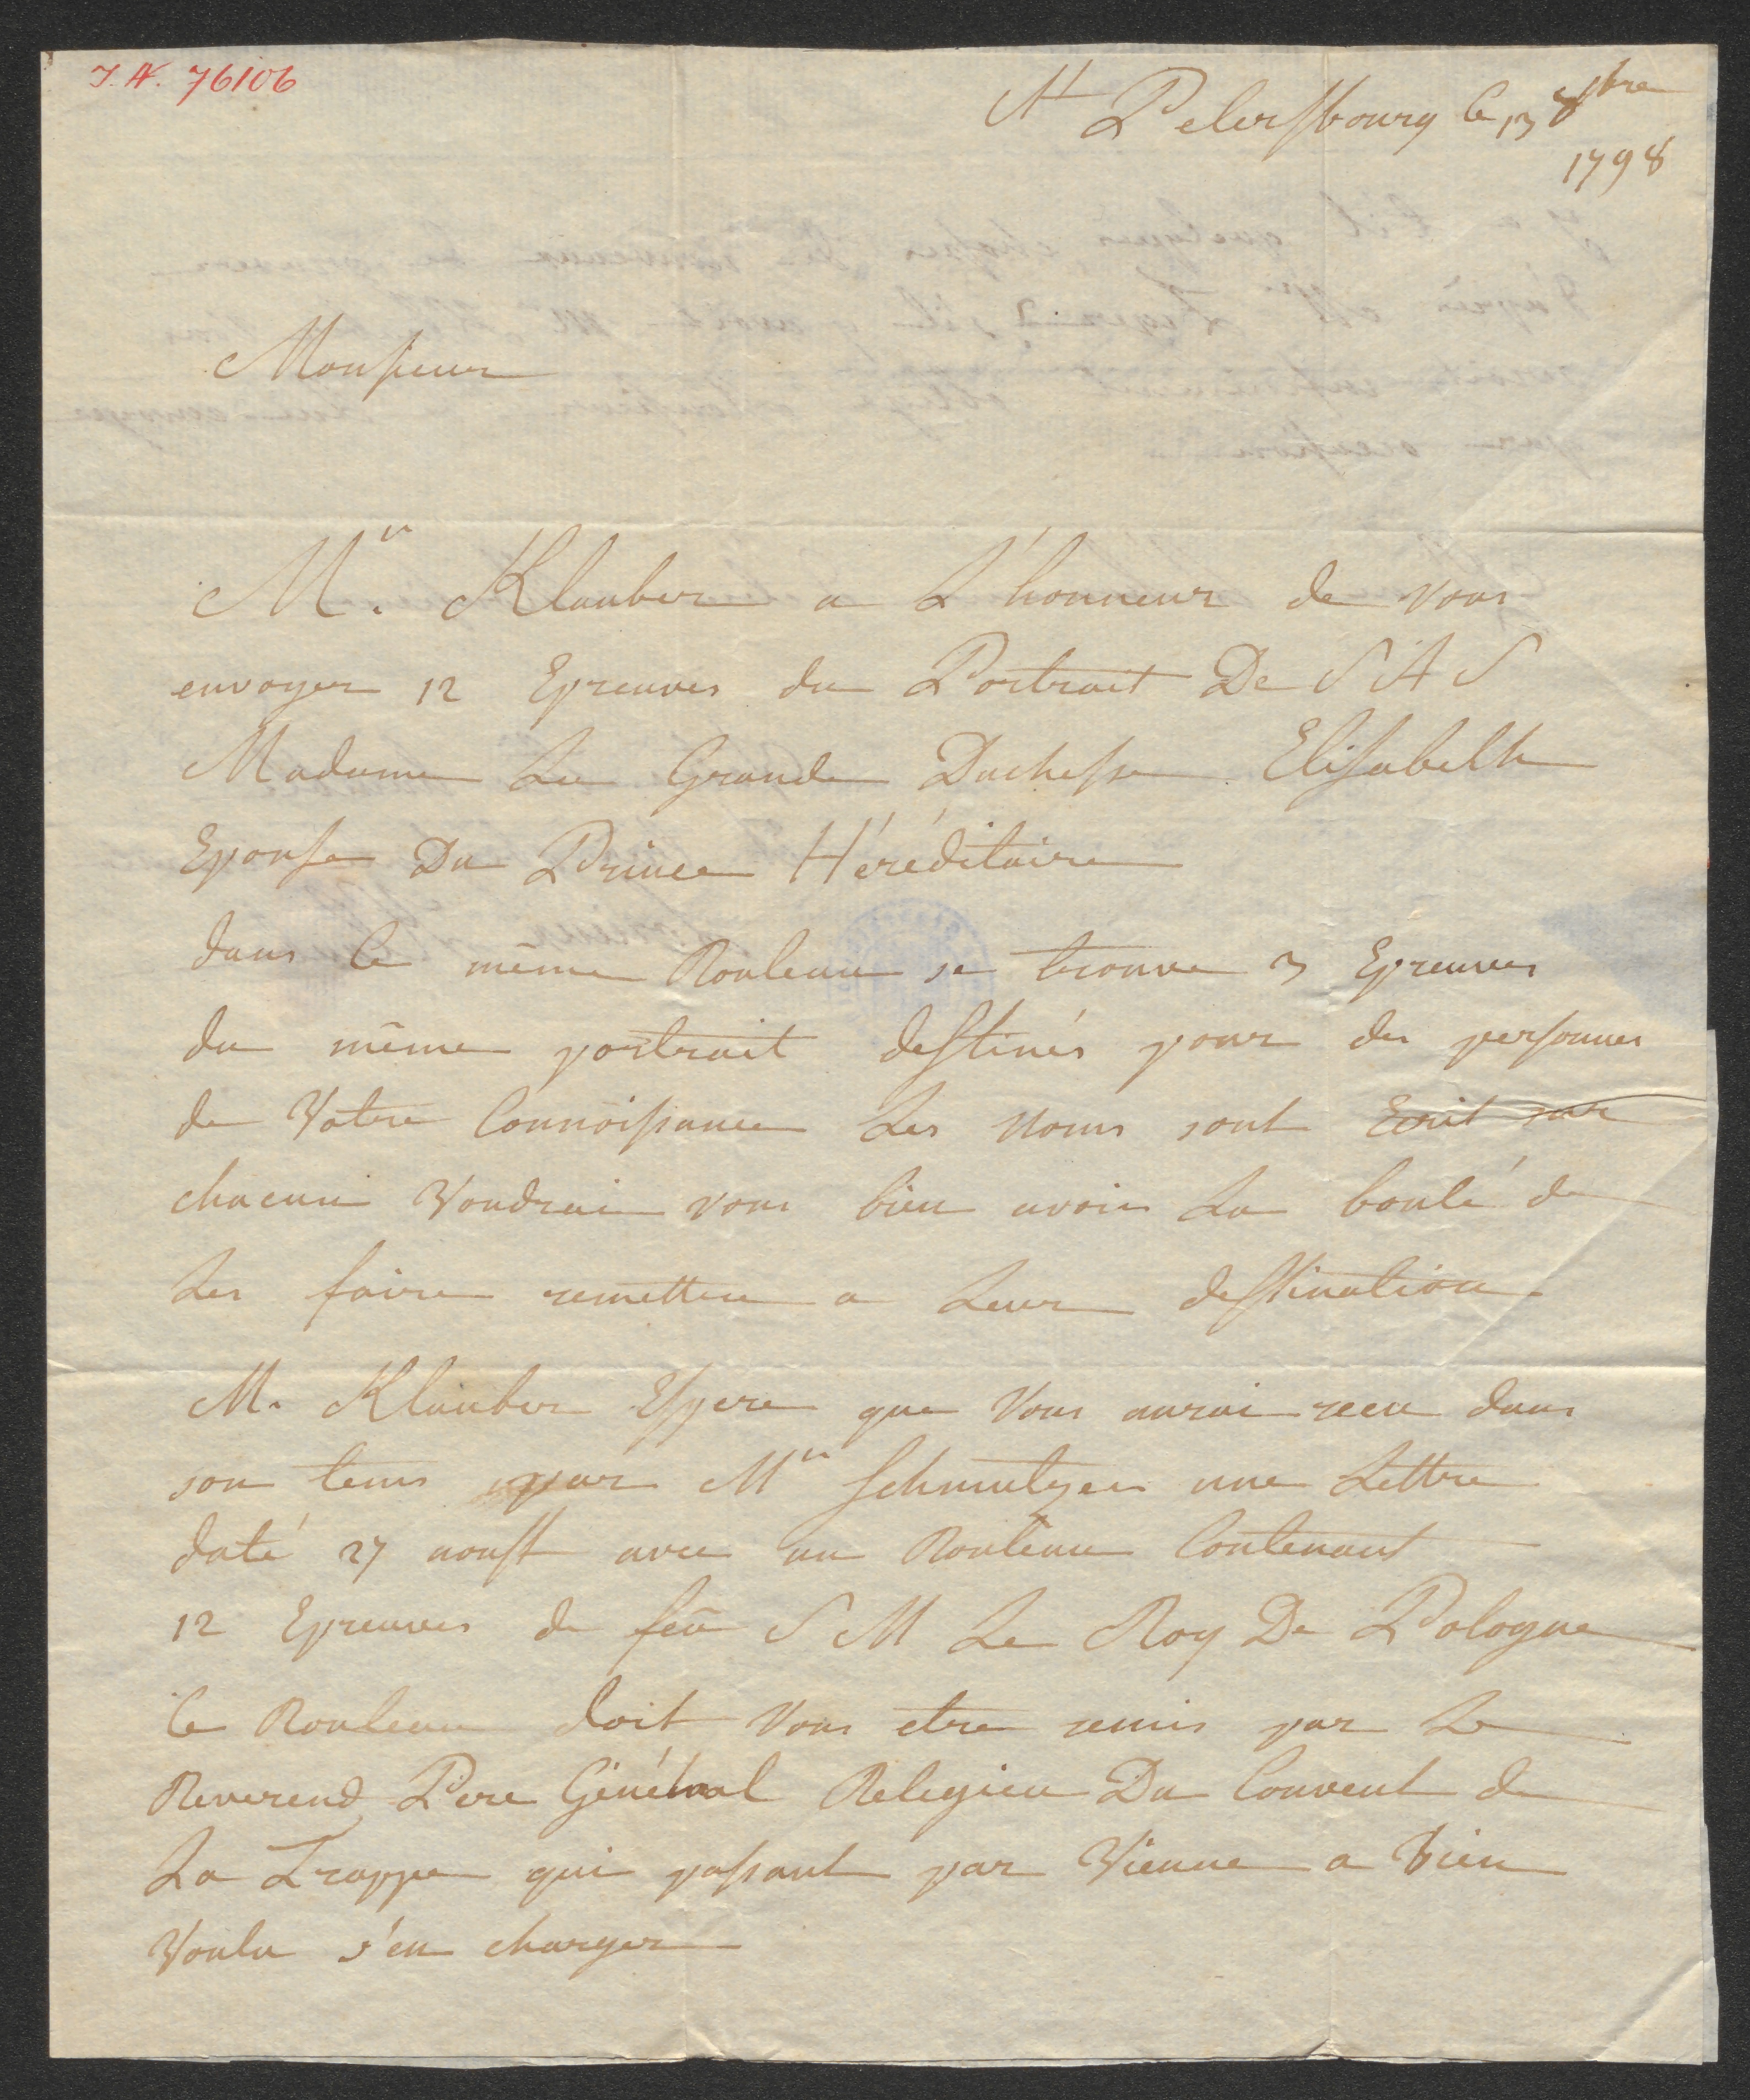 I. N. 76106
St Petersbourg le 13 8bre
1798
Monsieur
Mr. Klauber a L'honneur de vous
envoyer 12 Epreuves du Portrait De S A S
Madame La Grande Duchesse Elisabeth
Epouse Du Prince Héréditaire
dans le même Rouleau se trouve 3 Epreuves
du même portrait destinés pour des personnes
de Votre Connoissance Les Noms sont Ecrit sur
chacuni Voudrai vous bien avoir La bonté de
Les faire remettre a Leur destination
M. Klauber Espere que Vous aurai recu dans
son tems par Mr Schmutzer une Lettre
daté 27 aoust avec un Rouleau Contenant
12 Epreuves de feu S M Le Roy De Pologne
Ce Rouleau doit Vous etre remis par Le
Reverend Pere Général Relegieu Du Couvent de
La Trappe qui passant par Vienne a bien
Voulu s'en charger